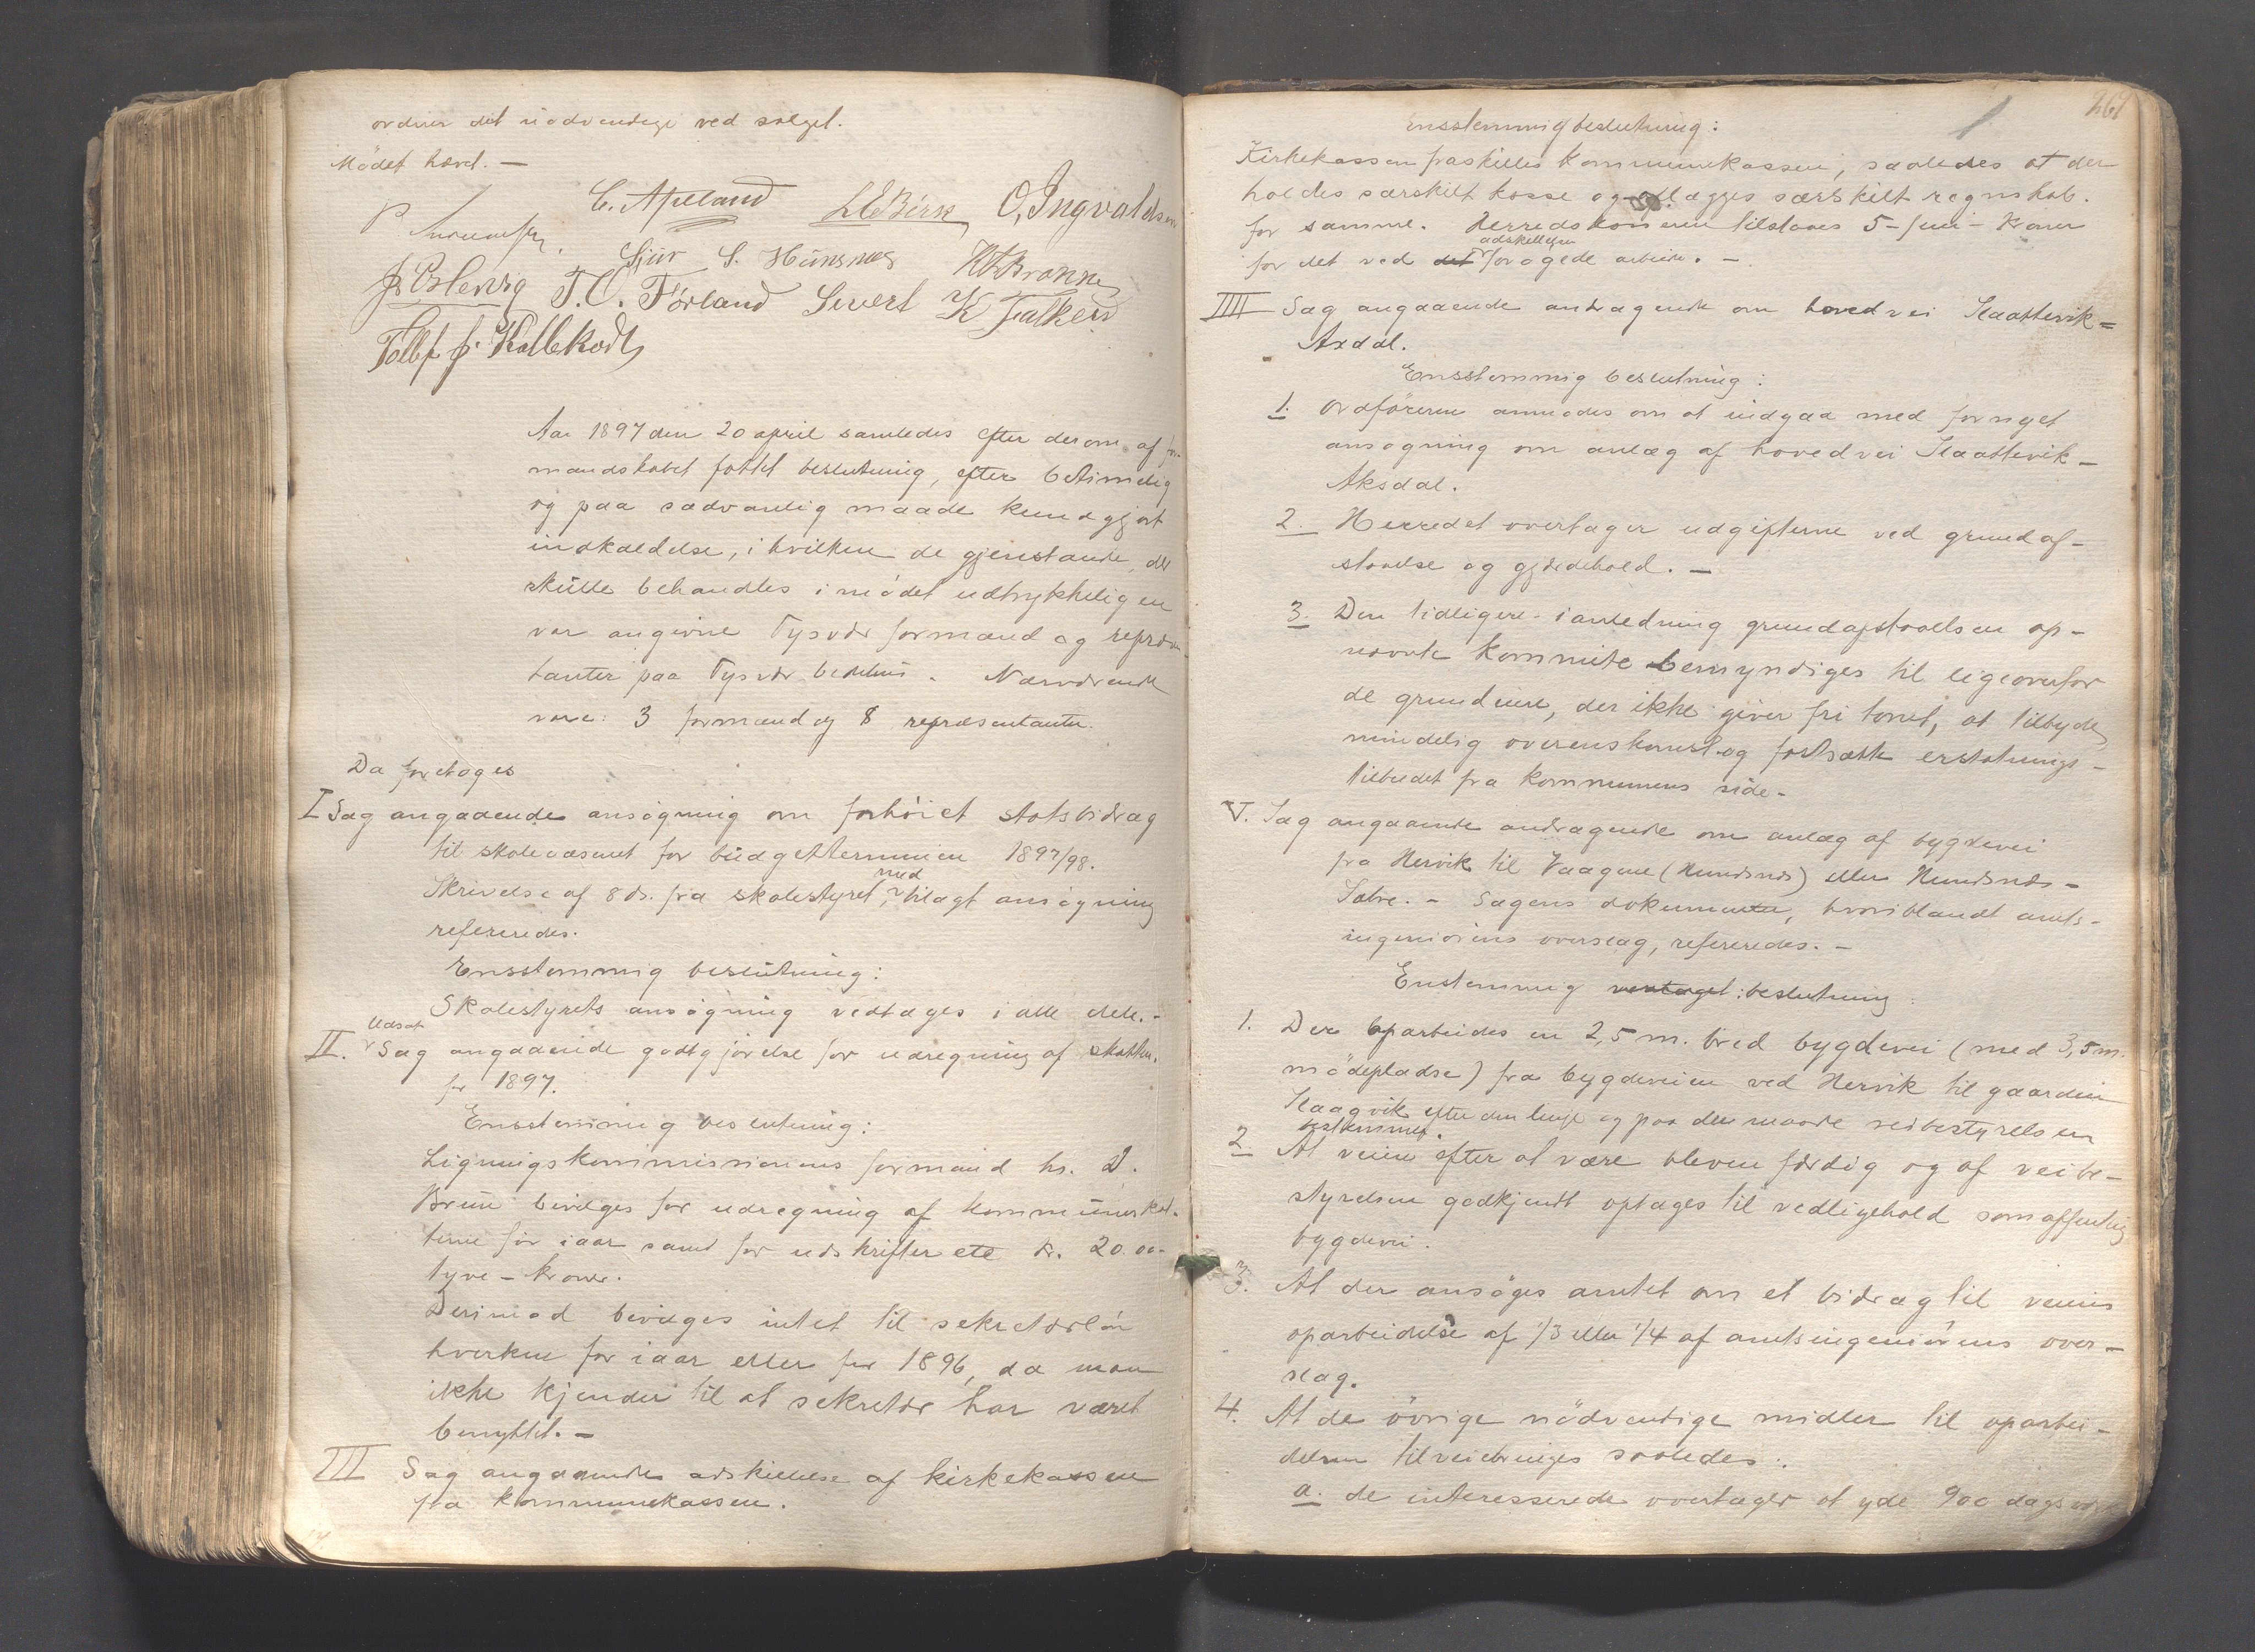 ordner det nødvendige ved salget.
Mødet hævet. —
C. Apeland L E Birk O, Ingvaldsen
P.
Sjur S. Hünsnæs
T. O. Förland Sivert K Falkeid
Aar 1897 den 20 april samledes efter derom af for-
mandskabet fattet beslutning, efter betimelig
og paa sædvanlig maade kundgjort
indkaldelse, i hvilken de gjenstande, der
skulle behandles i mødet udtrykkeligen
var angivne Tysvær formænd og repræsen-
tanter paa Tysvær bedehus. Nærværende
vare: 3 formænd og 8 repræsentanter.
Da foretoges
I Sag angaaende ansøgning om forhöiet statsbidrag
til skolevæsenet for büdgetterminen 1897/98.
Skrivelse af 8 ds. fra skolestyret, med tilagt ansøgning
refereredes.
Ensstemmig beslutning:
Skolestyrets ansøgning vedtages i alle dele. -
II. Udsat Sag angaaende godtgjørelse for udregning af skatten
for 1897.
Ensstemmig beslutning:
Ligningskommissionens formand hr. D.
Brun bevilges for udregning af kommuneskat-
terne for iaar samt for udskrifter etc kr. 20.00
tyve - kroner.
Derimod beviliges intet til sekretærløn
hverken for iaar eller for 1896, da man
ikke kjender til at sekretær har været
benyttet. —
III Sag angaaende adskillelse af kirkekassen
fra kommunekassen.
261
Ensstemmig beslutning:
Kirkekassen fraskilles kommunekassen, saaledes at der
holdes særskilt kasse og aflægges særskilt regnskab.
for samme. Herredskasseren tilstaaes 5 - fem - kroner
for det ved det adskillelsen forøgede arbeide. —
IIII Sag angaaende andragende om hovedvei Slaattevik =
Axdal.
Ensstemmig beslutning:
1. Ordføreren anmodes om at indgaa med fornyet
ansøgning om anlæg af hovedvei Slaattevik -
Aksdal.
2. Herredet overtager udgifterne ved grundaf-
staaelse og gjærdehold. —
3. Den tidligere i anledning grundafstaaelsen op-
nævnte kommite bemyndiges til ligeoverfor
de grundeiere, der ikke giver fri tomt, at tilbyde
mindelig overenskomst og fastsætte erstatnings-
tilbudet fra kommunens side -
V. Sag angaaende andragende om anlæg af bygdevei
fra Hervik til Vaagene (Hundsnæs) eller Hundsnæs -
Salve. - Sagens dokumenter, hvoriblandt amts-
ingeniörens overslag, refereredes. —
Enstemmig vedtaget: beslutning:
1. Der oparbeides en 2,5 m. bred bygdevei (med 3,5 m.
mødepladse) fra bygdeveien ved Hervik til gaarden
Slaagvik efter den linje og paa den maade veibestyrelsen
bestemmer.
2. At veien efter at være bleven færdig og af veibe-
styrelsen godkjendt optages til vedligehold som offentlig
bygdevei.
3. At der ansöges amtet om et bidrag til veiens
oparbeidelse af 1/3 eller 1/4 af amtsingeniörens over-
slag.
4. At de övrige nödvendige midler til oparbei-
delsen tilveiebringes saaledes:
a. de interesserede overtager at yde 900 dagsverk